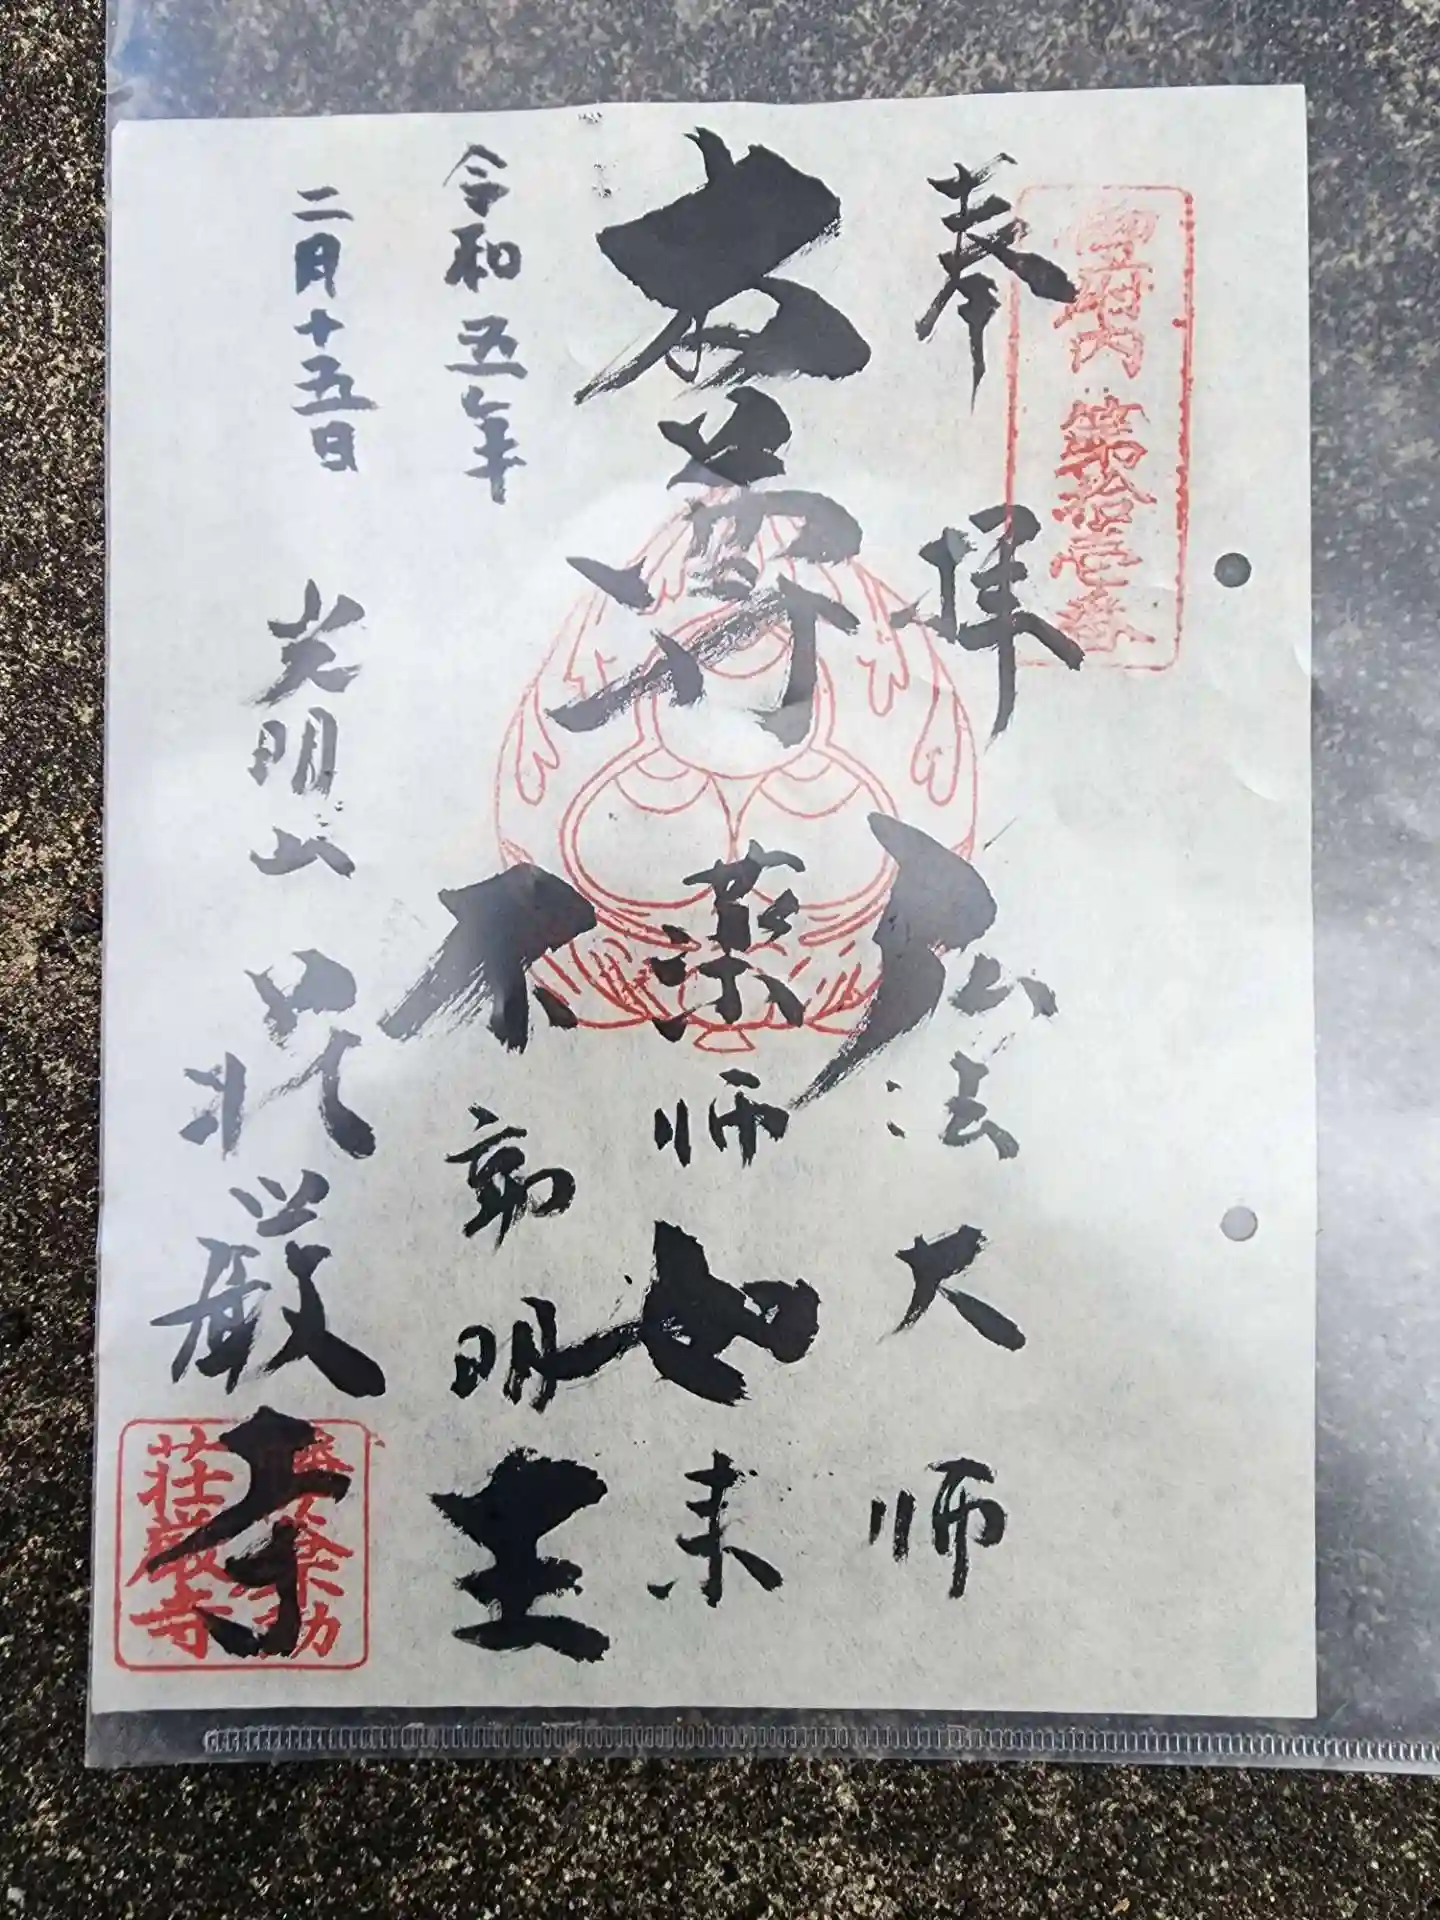 御府内 第拾壱番
奉拝
本尊
弘法大師
薬師如来
不動明王
令和五年
二月十五日
光明山 荘厳寺
不動
荘厳寺